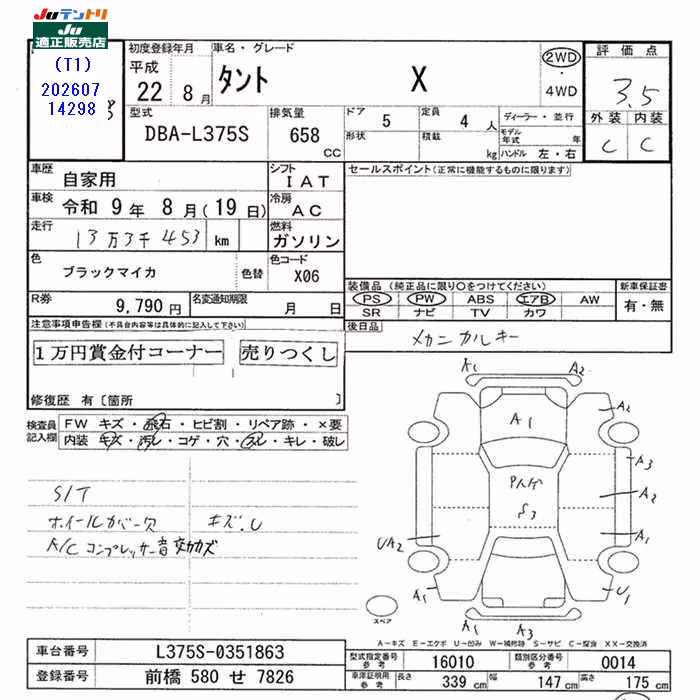 JUテントリ
JU
適正販売店
(T1)
202607
14298
初度登録年月
平成
22 年 8 月
車名・グレード
タント X
2WD
・
4WD
評価点
3.5
外装 内装
C C
型式
DBA-L375S
排気量
658 CC
ドア 5
定員 4 人
形状
積載 kg
ディーラー・並行
モデル年式 年
ハンドル 左・右
車歴 自家用
シフト IAT
セールスポイント(正常に機能するものに限ります)
車検 令和 9 年 8 月(19 日)
冷房 AC
走行 13万3千453 km
燃料 ガソリン
色 ブラックマイカ 色替
色コード X06
装備品(純正品に限り○をつけてください)
PS PW ABS エアB AW
SR ナビ TV カワ
新車保証書
有・無
R券 9,790 円
名変通知期限 月 日
後日品 メカニカルキー
注意事項申告欄(不具合内容等は具体的に記入して下さい)
1万円賞金付コーナー 売りつくし
修復歴 有〔箇所 〕
検査員記入欄
FW キズ・飛石・ヒビ割・リペア跡・×要
内装 キズ・汚レ・コゲ・穴・スレ・キレ・破レ
S/T
ホイールカバー欠 キズ.U
A/C コンプレッサー音 効カズ
A1 A2
A1 A2
A3
A2
A1
S3
UA2
A1 U1
A1 A3
スペア
A-キズ E-エクボ U-凹み W-補修跡 S-サビ C-腐食 XX-交換済
車台番号 L375S-0351863
登録番号 前橋 580 せ 7826
型式指定番号 参考 16010
類別区分番号 参考 0014
車検証明用 参考 長さ 339 cm 幅 147 cm 高さ 175 cm